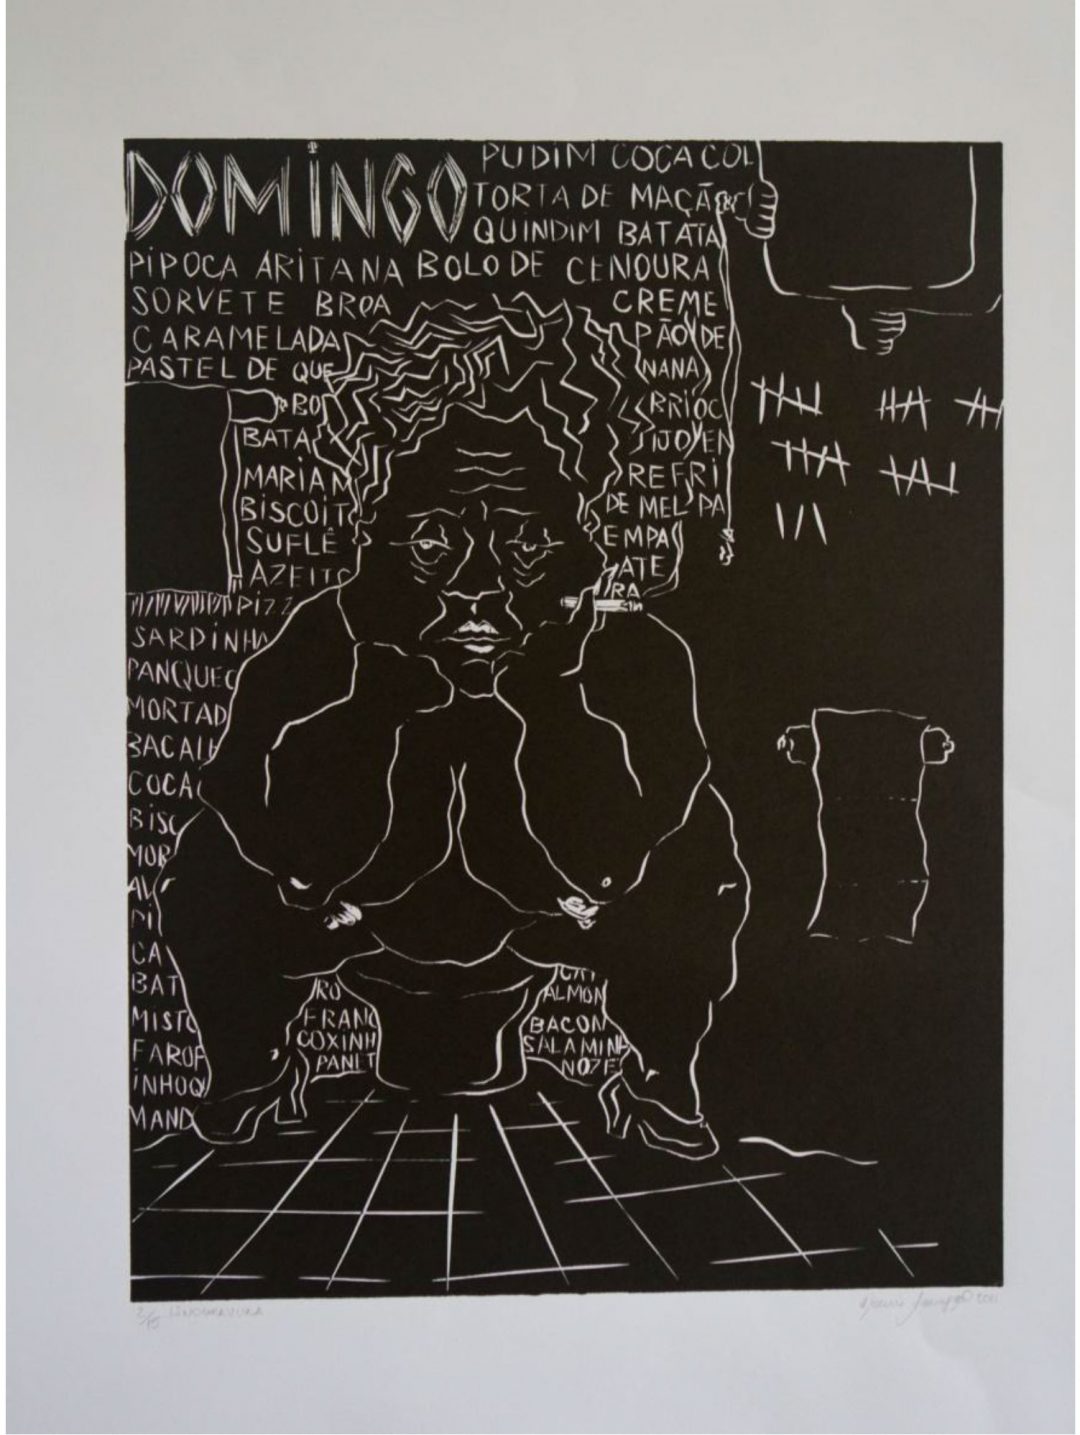 DOMINGO
PUDIM COCA COL
TORTA DE MAÇÃ
QUINDIM BATATA
PIPOCA ARITANA BOLO DE CENOURA
SORVETE BROA CREME
CARAMELADA PÃO DE
PASTEL DE QUE NANA
BO BRIOC
BATA IJO EN
MARIAN REFRI
BISCOIT DE MEL PA
SUFLÊ EMPA
AZEITO ATE
PIZZ RA
SARDINHA
PANQUEC
MORTAD
BACALH
COCA
BISC
MOR
AV
PIL
CA
BAT
MISTO
FAROF
INHOQ
MAND
RO
FRANG
COXINH
PANET
ALMON
BACON
SALAMINH
NOZE
2/15 LINOGRAVURA
2011